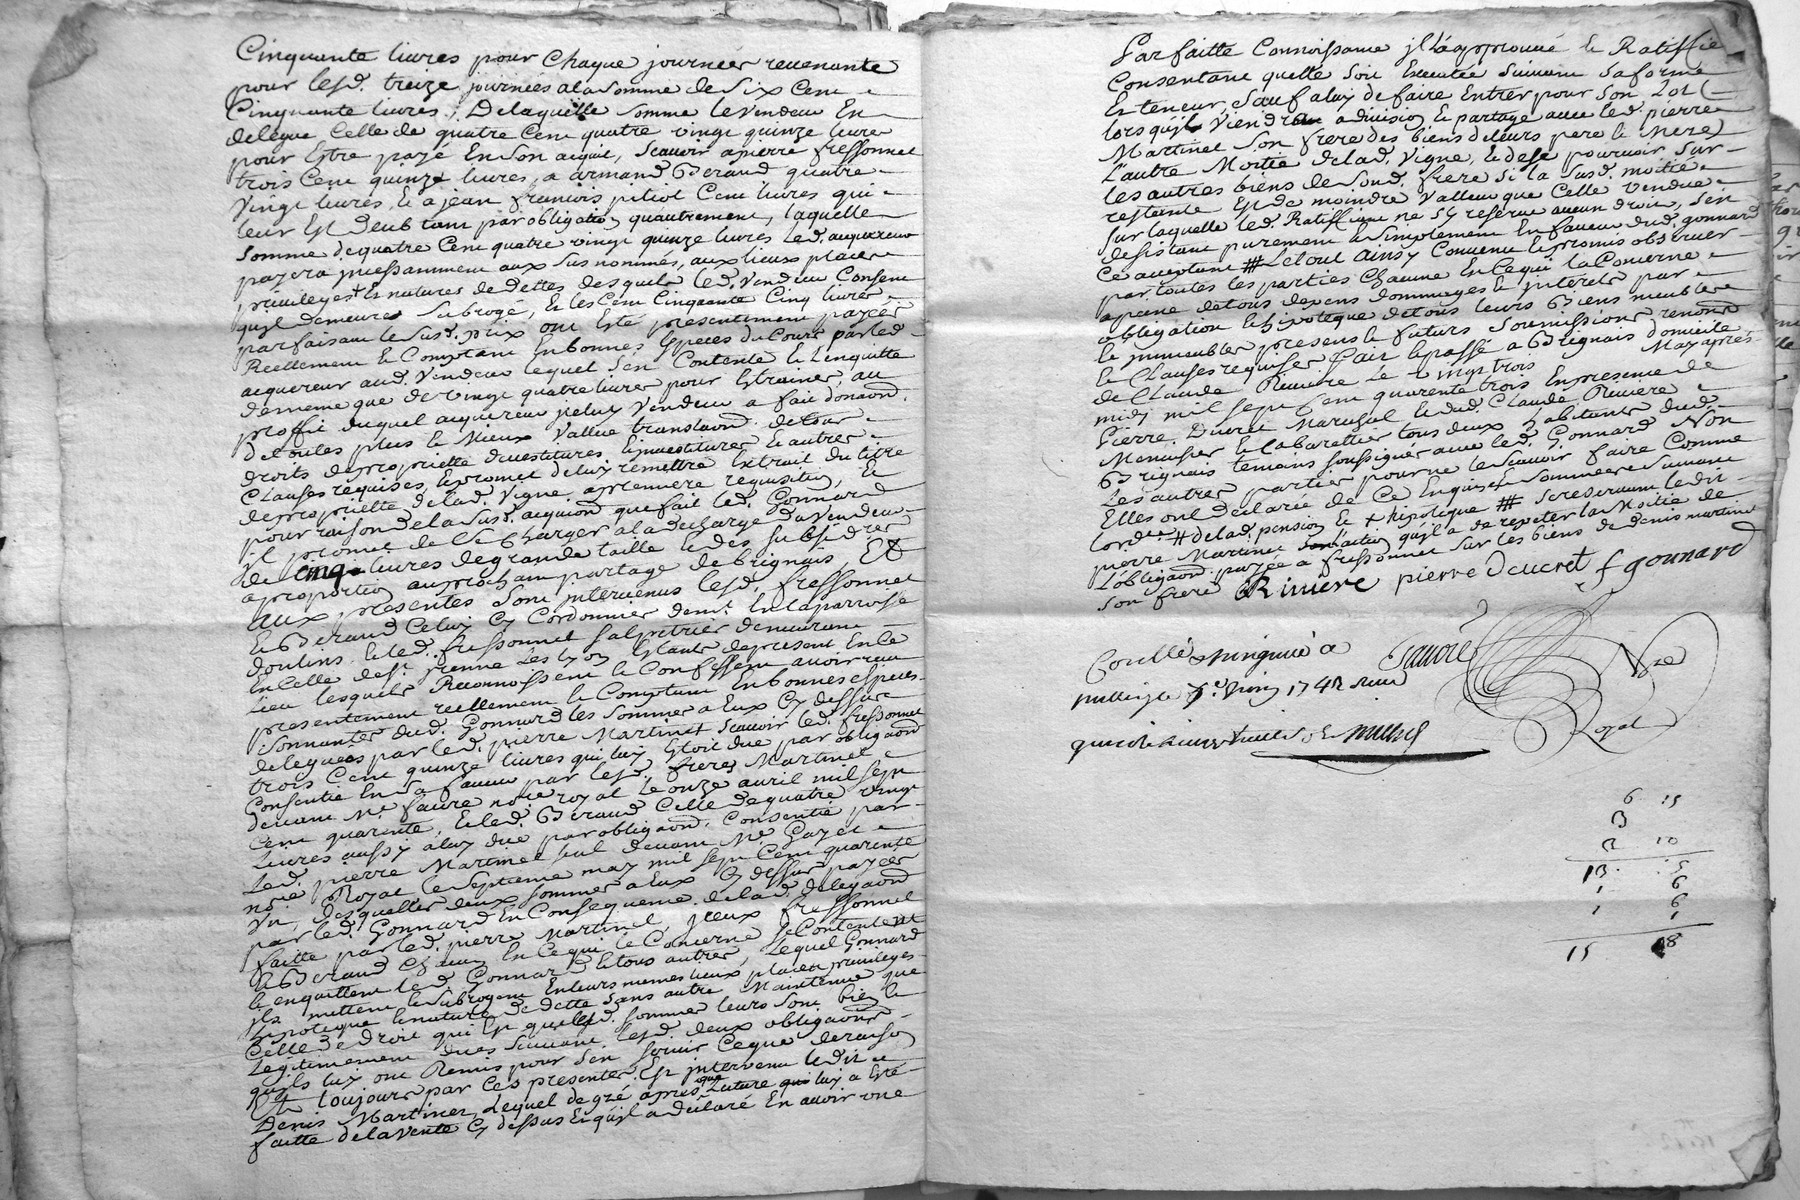 Cinquante livres pour Chaque journéer revenante
pour lesd. treize journées ala Somme de Six Cent
Cinquante livres, Delaquelle Somme le Vendeur En
delegue Celle de quatre Cent quatre vingt quinze livres
pour Estre payé En Son acquit, Scavoir apierre fressonnet
trois Cent quinze livres, a armand Beraud quatre
Vingt livres, Et a jean francois pitiot Cent livres qui
leur Est deub tant par obligation quautrement, laquelle
Somme dequatre Cent quatre vingt quinze livres led. acquereur
payera incessamment aux Sus nommés, aux lieux places
privileges Et natures de dettes desquels led. Vendeur Consent
quil demeure Subrogé, Et les Cent Cinquante Cinq livres
parfaisant le Susd. prix ont Esté presentement payées
Reellement Et Comptant En bonnes Especes du Cours par led.
acquereur aud. Vendeur lequel Sen Contente Et Lenquitte
dememe que de vingt quatre livres pour Etraines, au
proffit duquel acquereur jceluy Vendeur a fait donaond.
De toutes plus Et Mieux Vallue translaond. de tous
droits de proprietté devestitures Et investitures Et autres
Clauses requises, Et promet deluy remettre Extrait du titre
de proprietté delad. Vigne apremiere requisition, Et
pour raison dela Susd. acquiond que fait led. Gonnard
jl promet de Se Charger ala decharge du Vendeur
de cinq livres degrande taille Et des Subsides
aproportion auprochain partage de brignais, Et
Aux presentes Sont jntervenus lesd. fressonnet
Et Beraud Celuy Cy Cordonnier demt. En la parroisse
doulins, Et led. fressonnet Salpetrier demeurant
En Celle de St. jrenné Les Lyon Etants de present En Ce
Lieu lesquels Reconnoissent Et Confessent avoir reçu
presentement reellement Et Comptant En bonnes especes
Sonnantes dud. Gonnard les Sommes a Eux Cy dessus
deleguées par led. pierre Martinet Scavoir led. fressonnet
trois Cent quinze livres qui luy Etoit due par obligaond
Consentie En Sa faveur par lesd. freres Martinet
devant Me. faure noire royal le onze avril mil Sept
Cent quarente, Et led. Beraud Celle de quatre vingt
Livres aussy aluy due par obligaond. Consentie par
Led. pierre Martinet Seul devant Me. Gayet
noire Royal le Septieme may mil Sept Cent quarente
Un, desquelles deux Sommes a Eux Cy dessus payées
par led. Gonnard En Consequence delad. delegaond
faitte par led. pierre Martinet, jceux fressonnet
Et Beraud Chacun En Ce qui le Concerne Se Contentent
Et enquittent led. Gonnard Et tous autres, Lequel Gonnard
jls mettent Et Subrogent En leurs memes lieux places privileges
hipoteque Et nature de dette Sans autre Maintenue que
Celle de droit qui Est quelesd. Sommes leurs Sont bien Et
Legitimement dues Suivant lesd. deux obligaonds
quils luy ont Remis pour Sen Servir Ceque de raison
Et toujours par Ces presentes Est jntervenu led.
Denis Martinet, Lequel de gré apres que Lecture luy a Eté
faitte dela vente Cy dessus Et quil a declaré En avoir une
Parfaitte Connoissance jl la approuvé Et Ratiffié
Consentant quelle Soit Executée Suivant Sa forme
Et teneur, Sauf aluy de faire Entrer pour Son Lot
lors quils Viendront a division Et partage avec led. pierre
Martinet Son frere des biens deleurs pere Et Mere
Lautre Moitié delad. Vigne, Et de Se pourvoir Sur
les autres biens de Sond. frere Si la Susd. moitié
restante Est de moindre Valleur que Celle Vendue
Sur laquelle led. Ratiffiant ne Sy reserve aucun droit, Sen
desistant purement Et Simplement En faveur dud. gonnard
Ce acceptant # Le tout Ainsy Convenu Et promis observer
par toutes les parties Chacune En Ce qui la Concerne
apeine detous depens dommages Et interets par
obligation Et hipoteque detous leurs Biens meubles
Et jmmeubles presens Et futurs Soumissions renond
Et Clauses requises, fait Et passé a Brignais domicile
de Claude Riviere Le vingt trois May apres
midy mil Sept Cent quarente trois En presence de
Pierre Ducret Marechal Et dud. Claude Riviere
Menuisier Et Cabarettier tous deux habitants dud.
Brignais temoins Soussignes avec led. Gonnard Non
Les autres parties pour ne le Scavoir faire Comme
Elles ont declarée de Ce Enquises Et Sommées Suivant
Lordce # delad. pension Et + hipotéque # Se reservant ledit
pierre Martinet Son action quil a de repeter la Moitié de
Lobligaond. payée a fressonnet Sur les biens de denis martinet
Son frere Riviere pierre ducret f gounard
Conllé à faure Nre
Royal
6 15
13 5
1 6
15 18